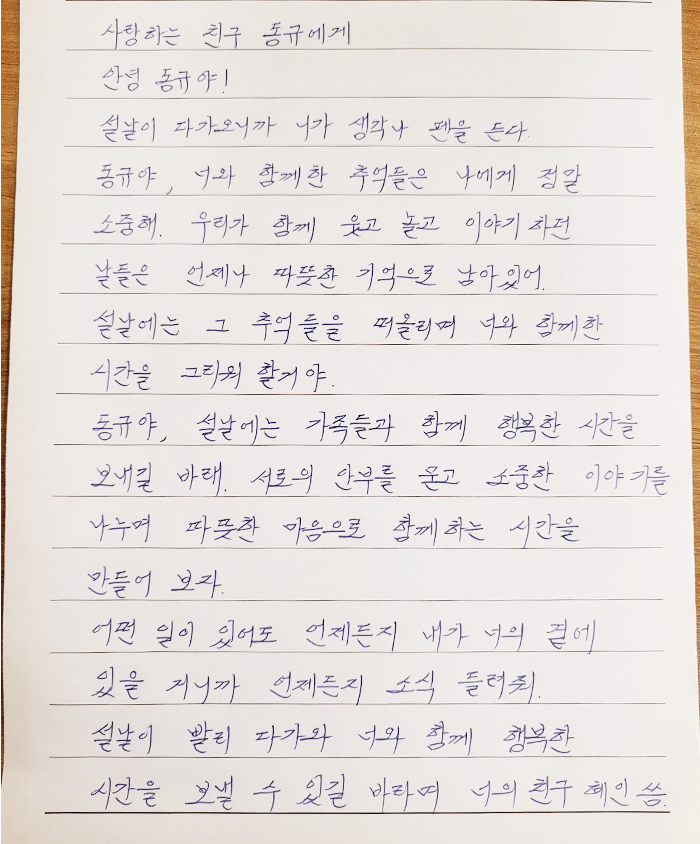 사랑하는 친구 동규에게
안녕 동규야!
설날이 다가오니까 니가 생각나 펜을 든다.
동규야, 너와 함께한 추억들은 나에게 정말
소중해. 우리가 함께 웃고 놀고 이야기하던
날들은 언제나 따뜻한 기억으로 남아있어.
설날에는 그 추억들을 떠올리며 너와 함께한
시간을 그리워 할거야.
동규야, 설날에는 가족들과 함께 행복한 시간을
보내길 바래. 서로의 안부를 묻고 소중한 이야기를
나누며 따뜻한 마음으로 함께하는 시간을
만들어 보자.
어떤 일이 있어도 언제든지 내가 너의 곁에
있을 거니까 언제든지 소식 들려줘.
설날이 빨리 다가와 너와 함께 행복한
시간을 보낼 수 있길 바라며 너의 친구 혜인 씀.